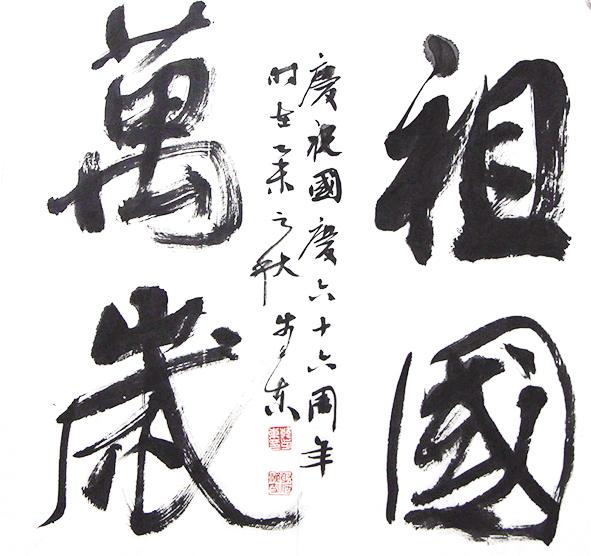 祖國
慶祝國慶六十六周年
时在乙未之秋步東
萬歲